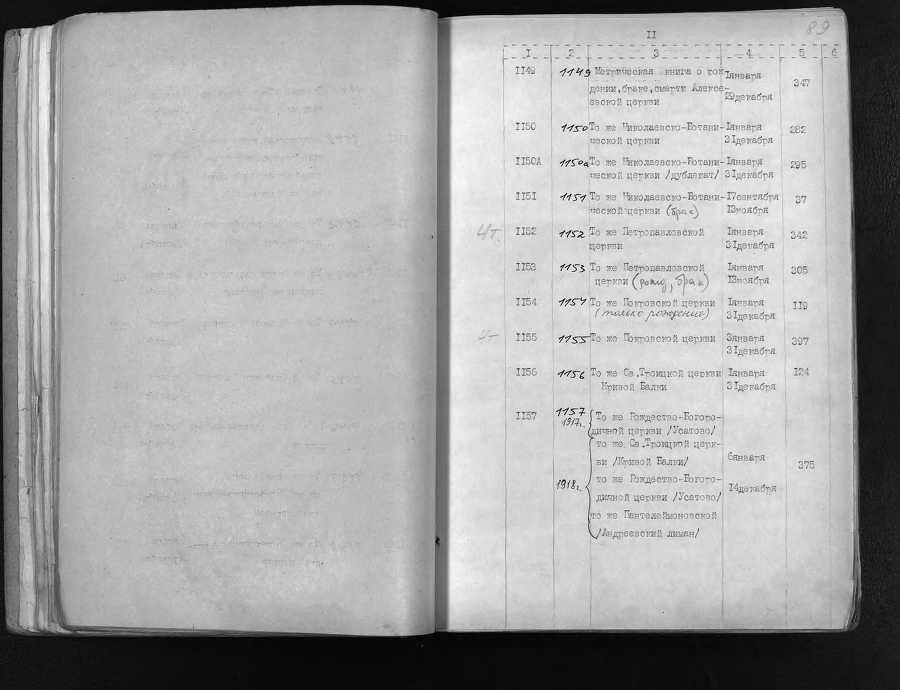 89
II
I 2 3 4 5 6
II49 1149 Метрическая книга о рож- Iянваря 347
дении, браке, смерти Алексе- 29декабря
евской церкви
II50 1150 То же Николаевско-Ботани- Iянваря 282
ческой церкви 3Iдекабря
II50А 1150а То же Николаевско-Ботани- Iянваря 295
ческой церкви /дубликат/ 3Iдекабря
II5I 1151 То же Николаевско-Ботани- I7сентября 37
ческой церкви (брак) I3ноября
II52 1152 То же Петропавловской Iянваря 342
церкви 3Iдекабря
II53 1153 То же Петропавловской Iянваря 305
церкви (рожд, брак) I3ноября
II54 1154 То же Покровской церкви Iянваря II9
(только рождения) 3Iдекабря
II55 1155 То же Покровской церкви 3января 397
3Iдекабря
II56 1156 То же Св.Троицкой церкви Iянваря I24
Кривой Балки 3Iдекабря
II57 1157 То же Рождество-Богоро-
1917г. дичной церкви /Усатово/
то же Св.Троицкой церк-
ви /Кривой Балки/ 6января 375
1918г. то же Рождество-Богоро- I4декабря
дичной церкви /Усатово/
то же Пантелеймоновской
/Андреевский лиман/